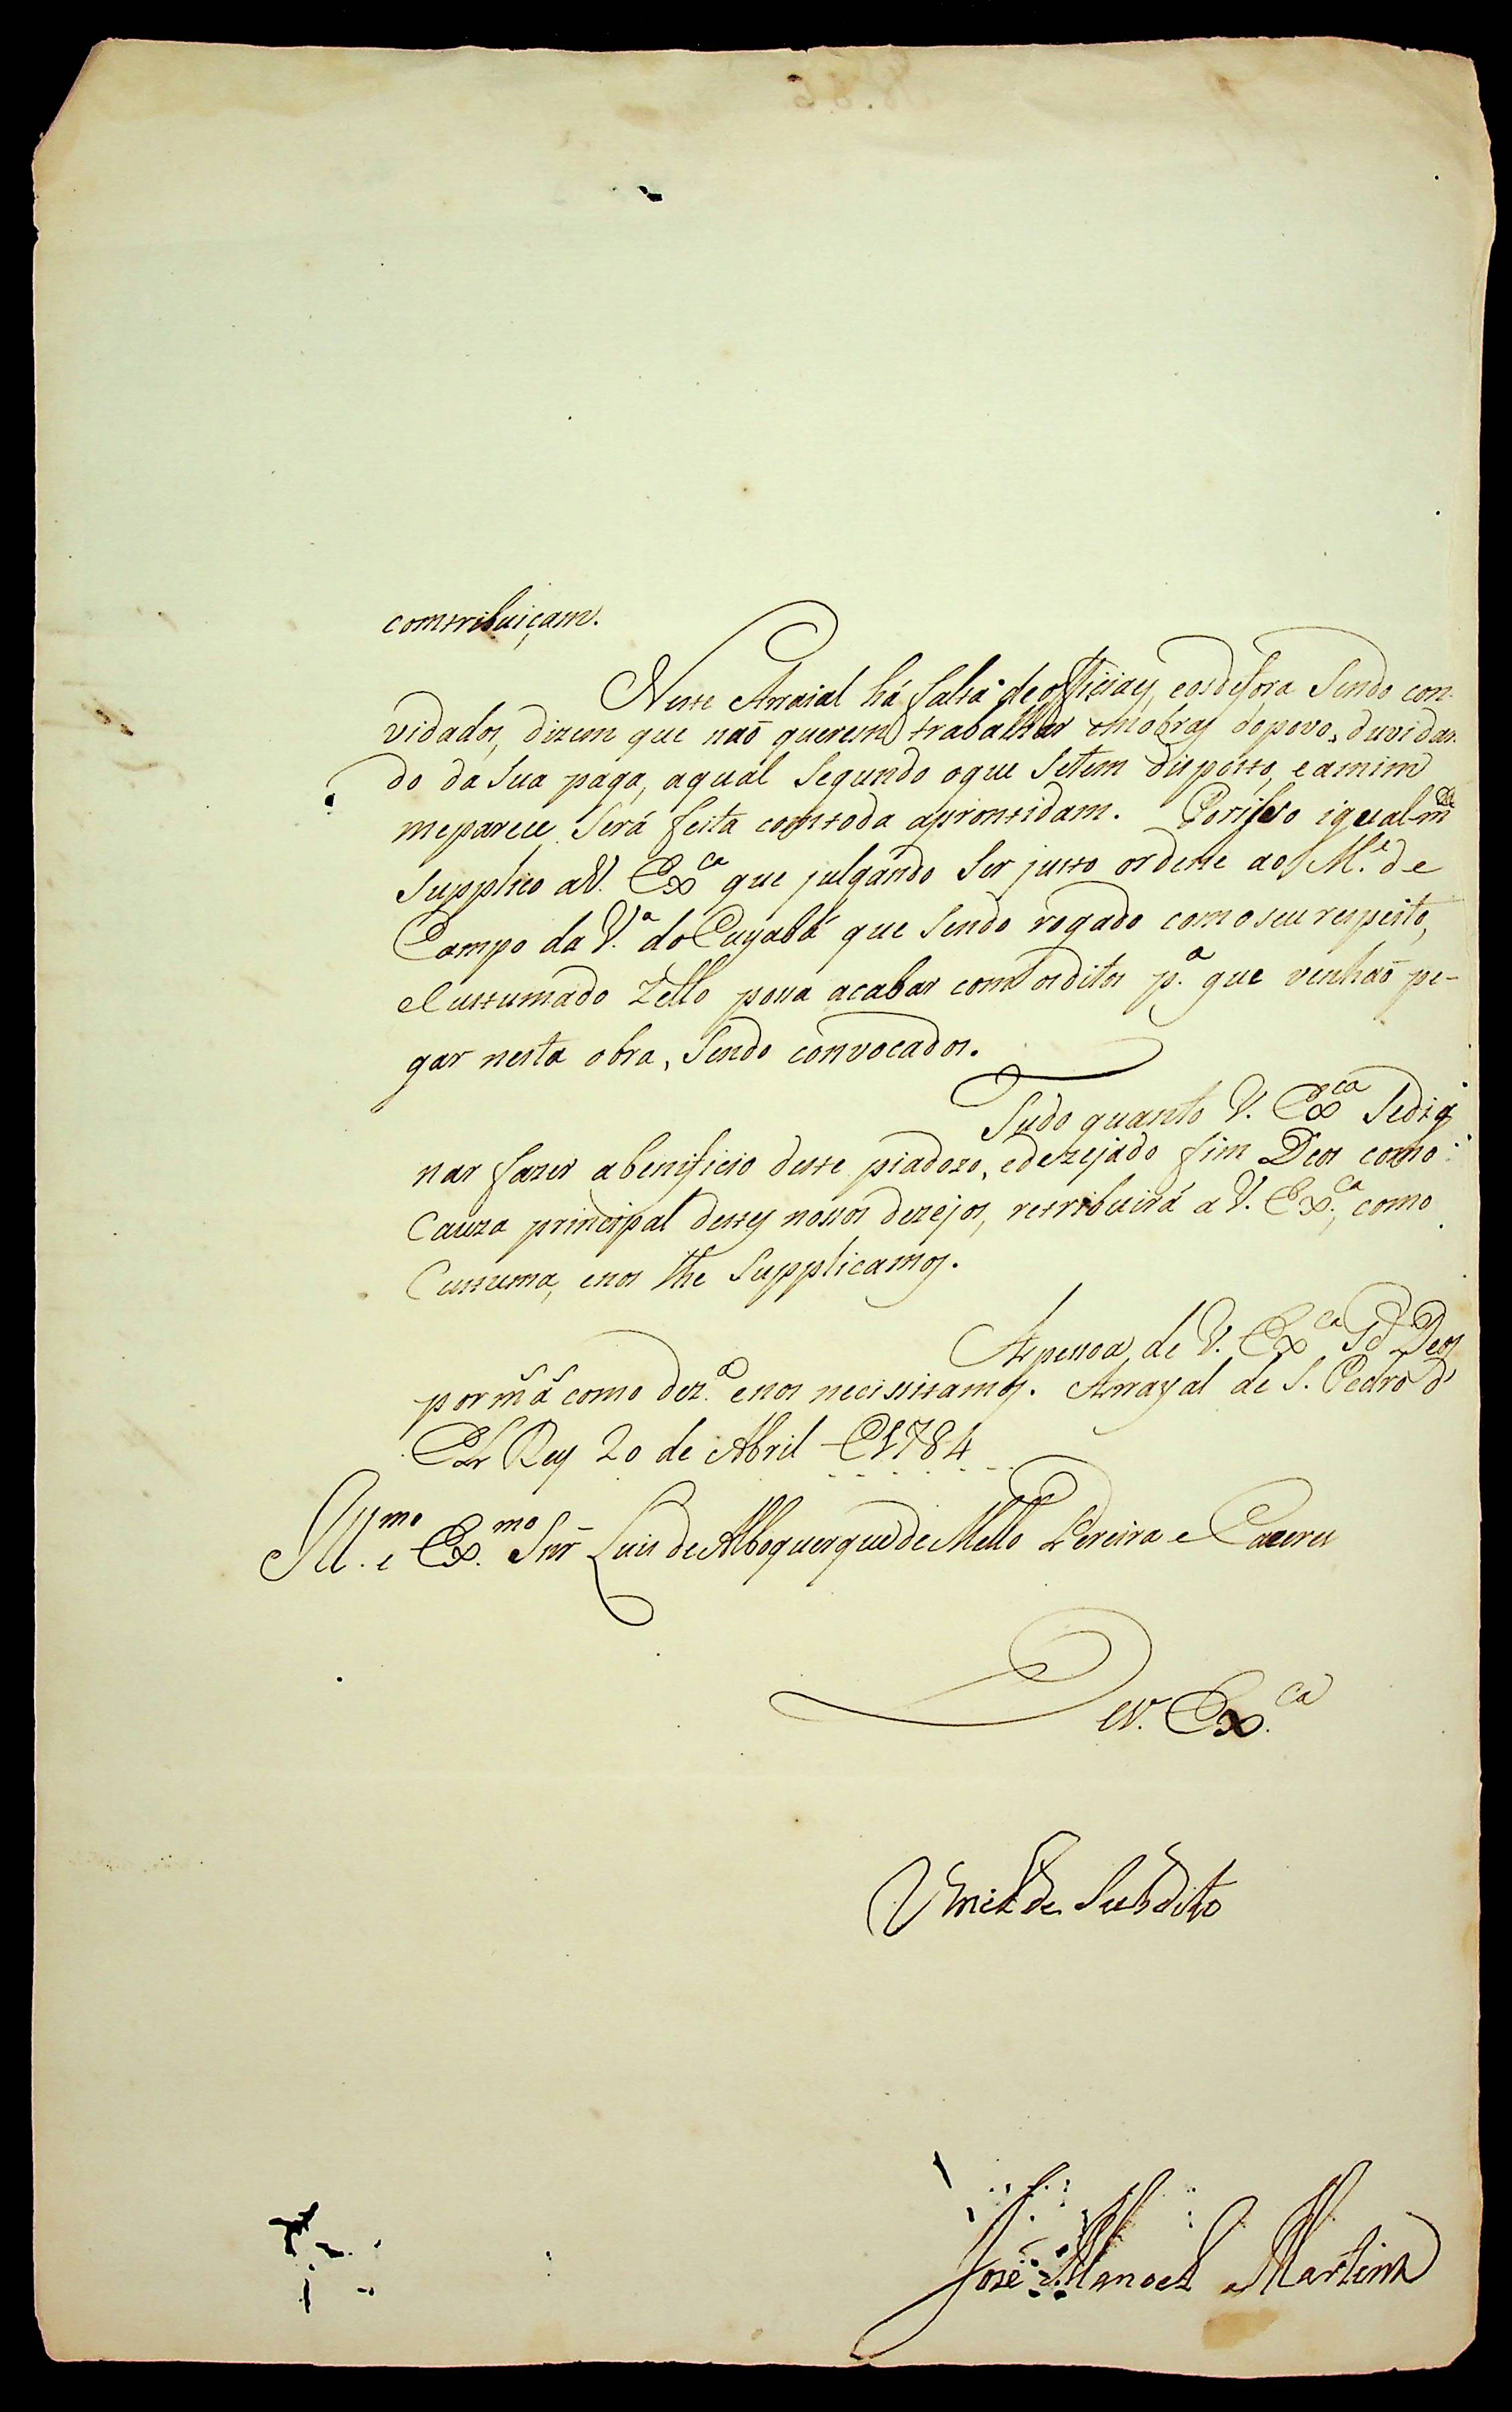 contribuiçam.
Neste Arraial há falta de officiaes, eosdefora Sendo con-
vidados, dizem que naõ querem trabalhar emobras dopovo, duvidan
do da Sua paga, aqual Segundo oque Setem disposto, eamim
meparece, Será feita comtoda aprontidam. Porisso igualm.de
Supplico aV. Ex.ca que julgando Ser justo ordene ao M.e de
Campo da V.a do Cuyabá que Sendo rogado comoseu respeito,
eCustumado Zello possa acabar com osditos p.a que venhaõ pe-
gar nesta obra, Sendo convocados.
Tudo quanto V. Ex.ca Sedig
nar fazer abenificio deste piadozo, edezejado fim Deos como
Cauza principal destes nossos dezejos, retribuirá a V. Ex.ca, como
Custuma, enos lhe Supplicamos.
Apessoa de V. Ex.ca G.de Deos
por m.s a.s como dez.o enos necissitamos. Arrayal de S. Pedro d'
El Rey 20 de Abril de 1784
Ill.mo e Ex.mo Snr Luis deAlboquerque de Mello Pereira e Caceres
DeV. Ex.ca
Vmilde Subdito
Joze Manoel Martins